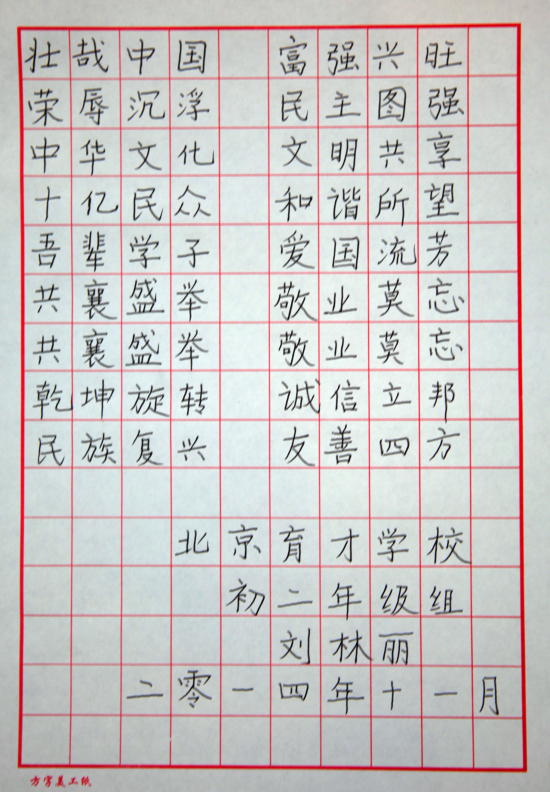 壮哉中国 富强兴旺
荣辱沉浮 民主图强
中华文化 文明共享
十亿民众 和谐所望
吾辈学子 爱国流芳
共襄盛举 敬业莫忘
共襄盛举 敬业莫忘
乾坤旋转 诚信立邦
民族复兴 友善四方
北京育才学校
初二年级组
刘林丽
二零一四年十一月
方字美工纸